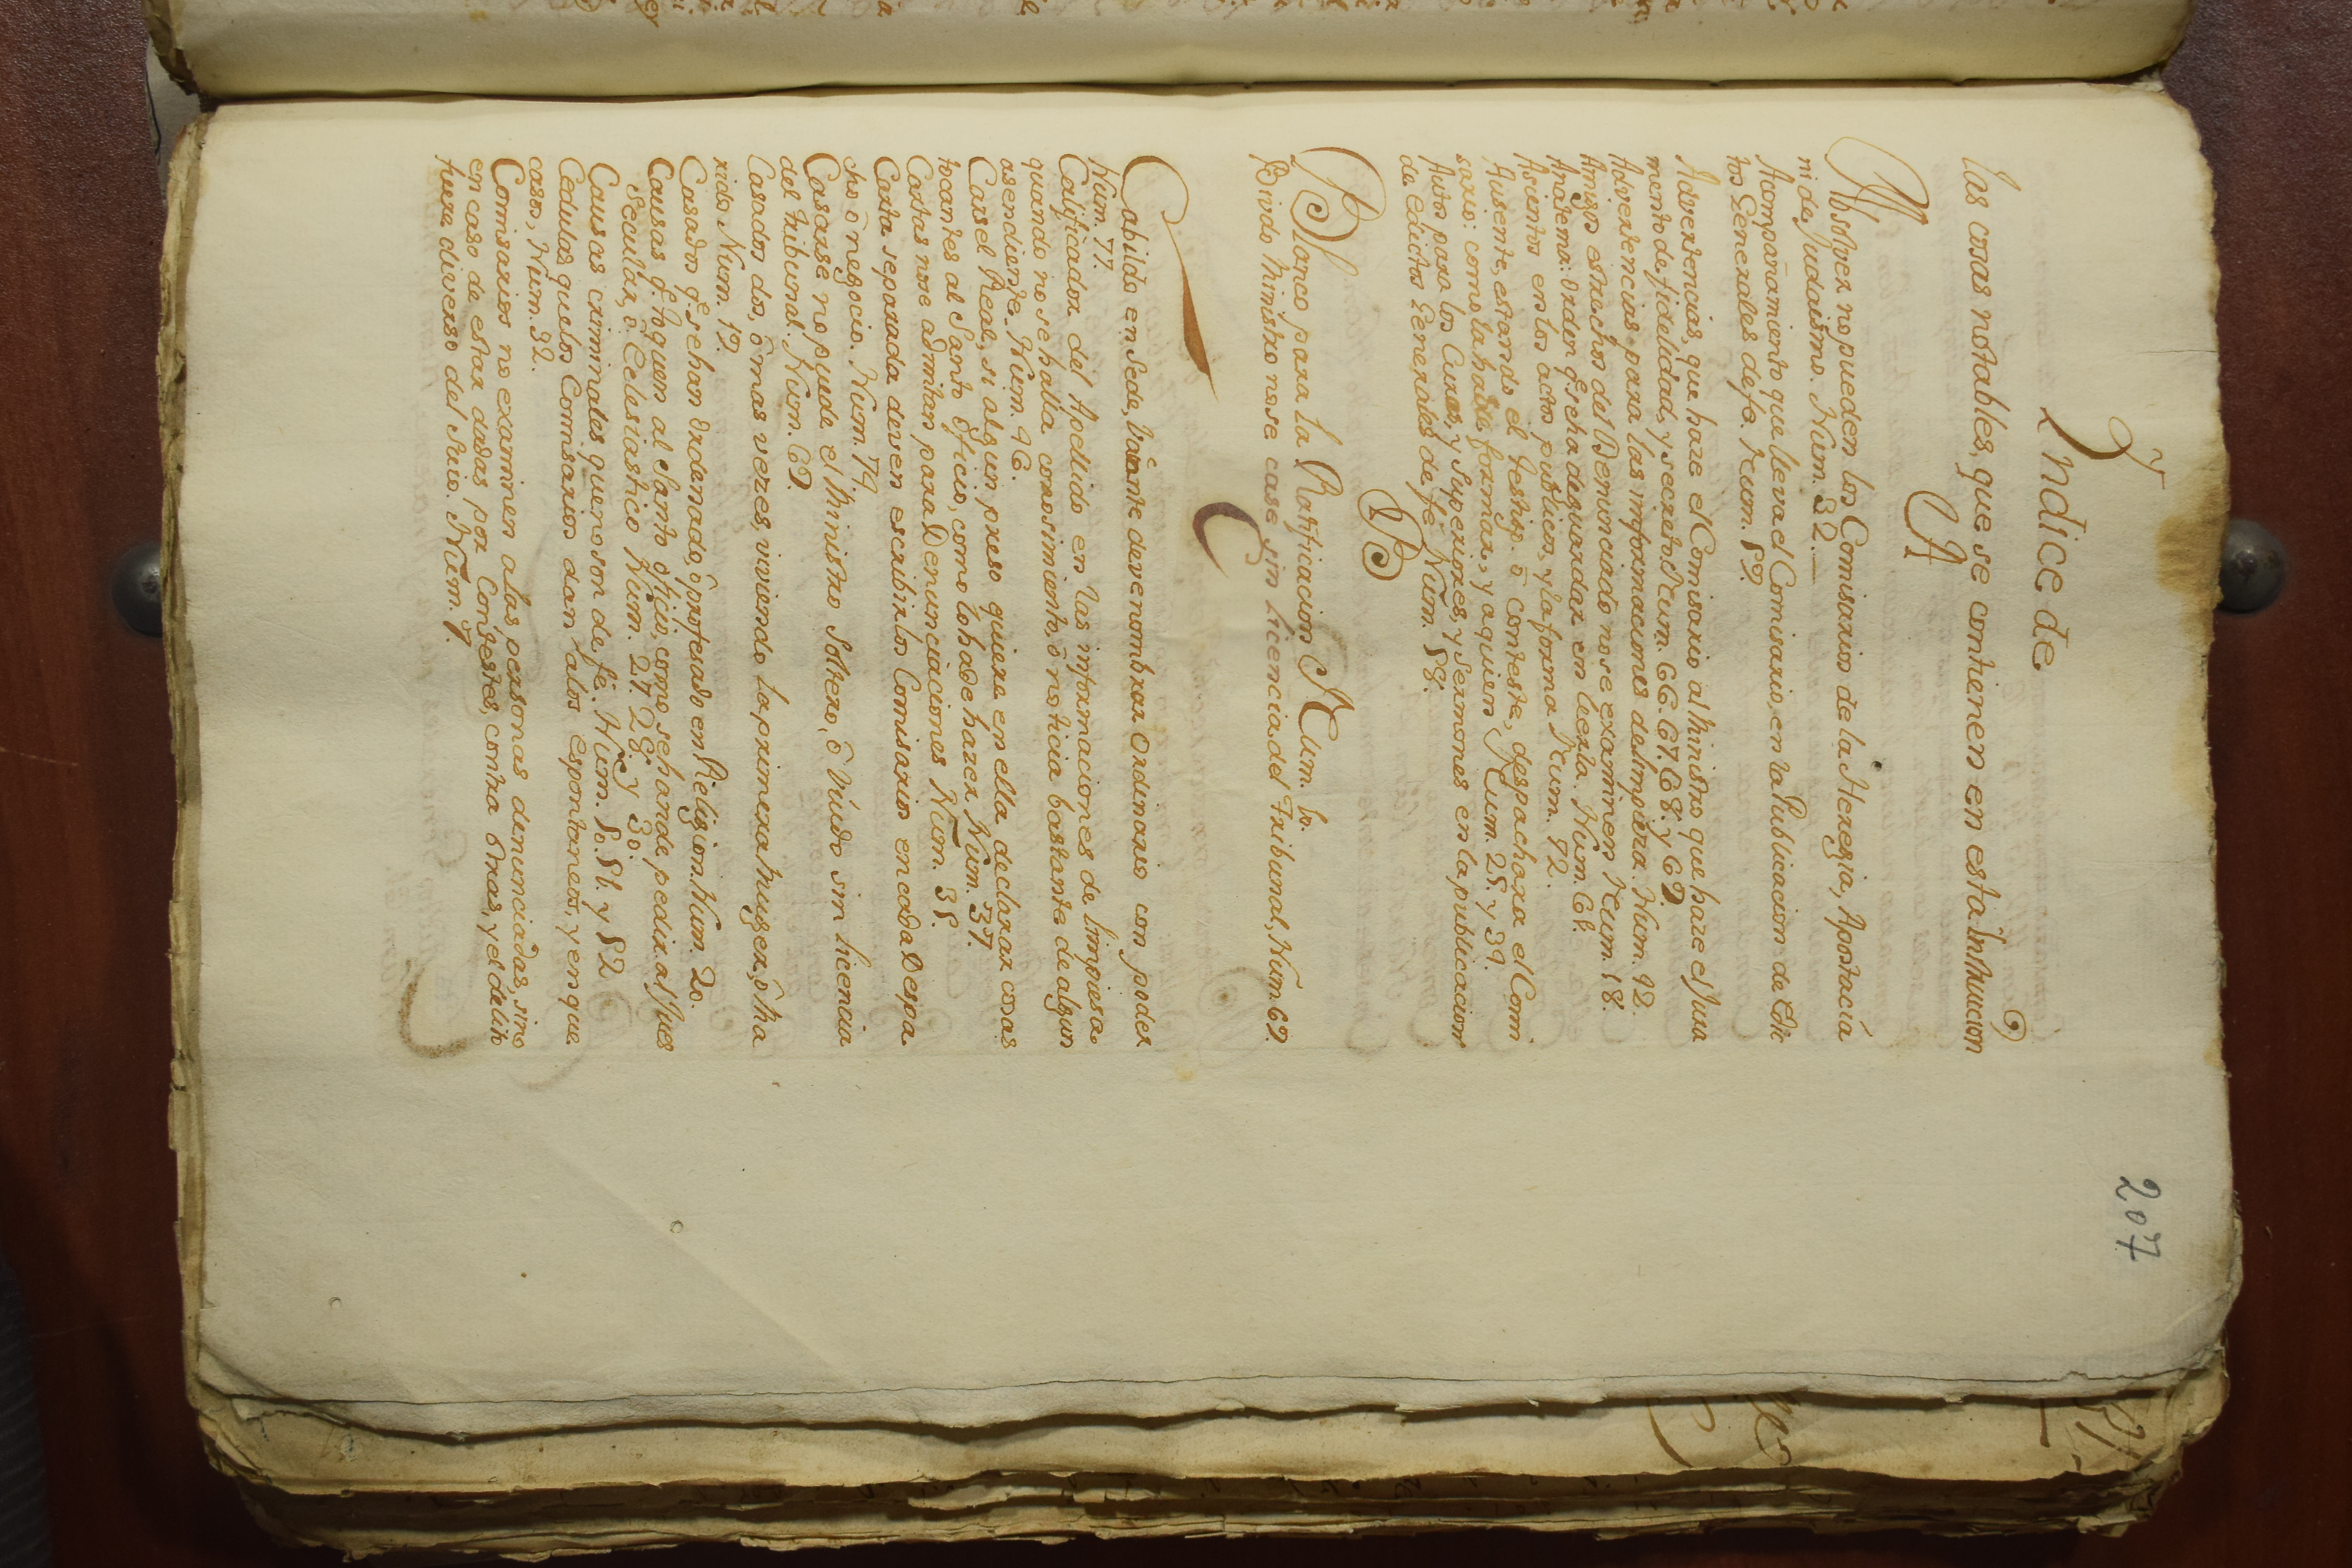 207
Yndice de
las cosas notables, que se contienen en esta Instruccion
A
Absolver no pueden los Comisarios de la Heregia, Apostacía
ni de Judaismo. Num. 32.
Acompañamiento que lleva el Comisario, en la Publicacion de Edic
tos Generales de fe. Num. 59.
Advertencias, que haze el Comisario al Ministro que haze el Jura
mento de fidelidad, y secreto Num. 66. 67. 68. y 69.
Advertencias para las informaciones de Limpieza. Num. 42.
Amigos estrechos del Denunciado no se examinen Num. 18.
Anotema: orden q.e se ha de guardar en leerla. Num. 61.
Asientos en los actos publicos, y la forma Num. 72.
Ausente, estando el testigo ō conteste, despachara el Comi
sario: como la ha de formar, y a quien Num. 25. y 39.
Autos para los Curas, y Superiores, y Sermones en la publicacion
de edictos Generales de fé Num. 58.
B
Blanco para la Ratificacion Num. 10.
Bivido Ministro no se case sin licencia del Tribunal, Num. 69.
C
Cabildo en Sede, Vacante deve nombrar Ordinario con poder
Num. 77.
Calificador del Apellido en las informaciones de limpieza
quando no se halla conosimiento, ō noticia bastante de algun
asendiente. Num. 46.
Carsel Real, si algun preso quiere en ella declarar cosas
tocantes al Santo Oficio, como lo hade hazer Num. 37.
Cartas no se admitan para Denunciaciones Num. 35.
Carta separada deven escribir los Comisarios en cada Despa
cho ō negocio. Num. 74.
Casarse no puede el Ministro Soltero, ō Viudo sin licencia
del tribunal. Num. 69.
Casados dos, ō mas vezes, viviendo la primera Muger, ō Ma
rido Num. 19.
Casados q.e se han Ordenado, ō profesado en Religion. Num. 20.
Causas q.e toquen al Santo Oficio, como se hande pedir al Jues
Secular, ō Eclesiastico Num. 27. 28. y 30.
Causas criminales que no son de fe. Num. 50. 51. y 52
Cedulas que los Comisarios dan a los Espontaneos, y en que
casos, Num. 32.
Comisarios no examinen a las personas denunciadas, sino
en caso de estar dadas por Contestes, contra otras, y el delito
fuese diverso del suio. Num. 7.